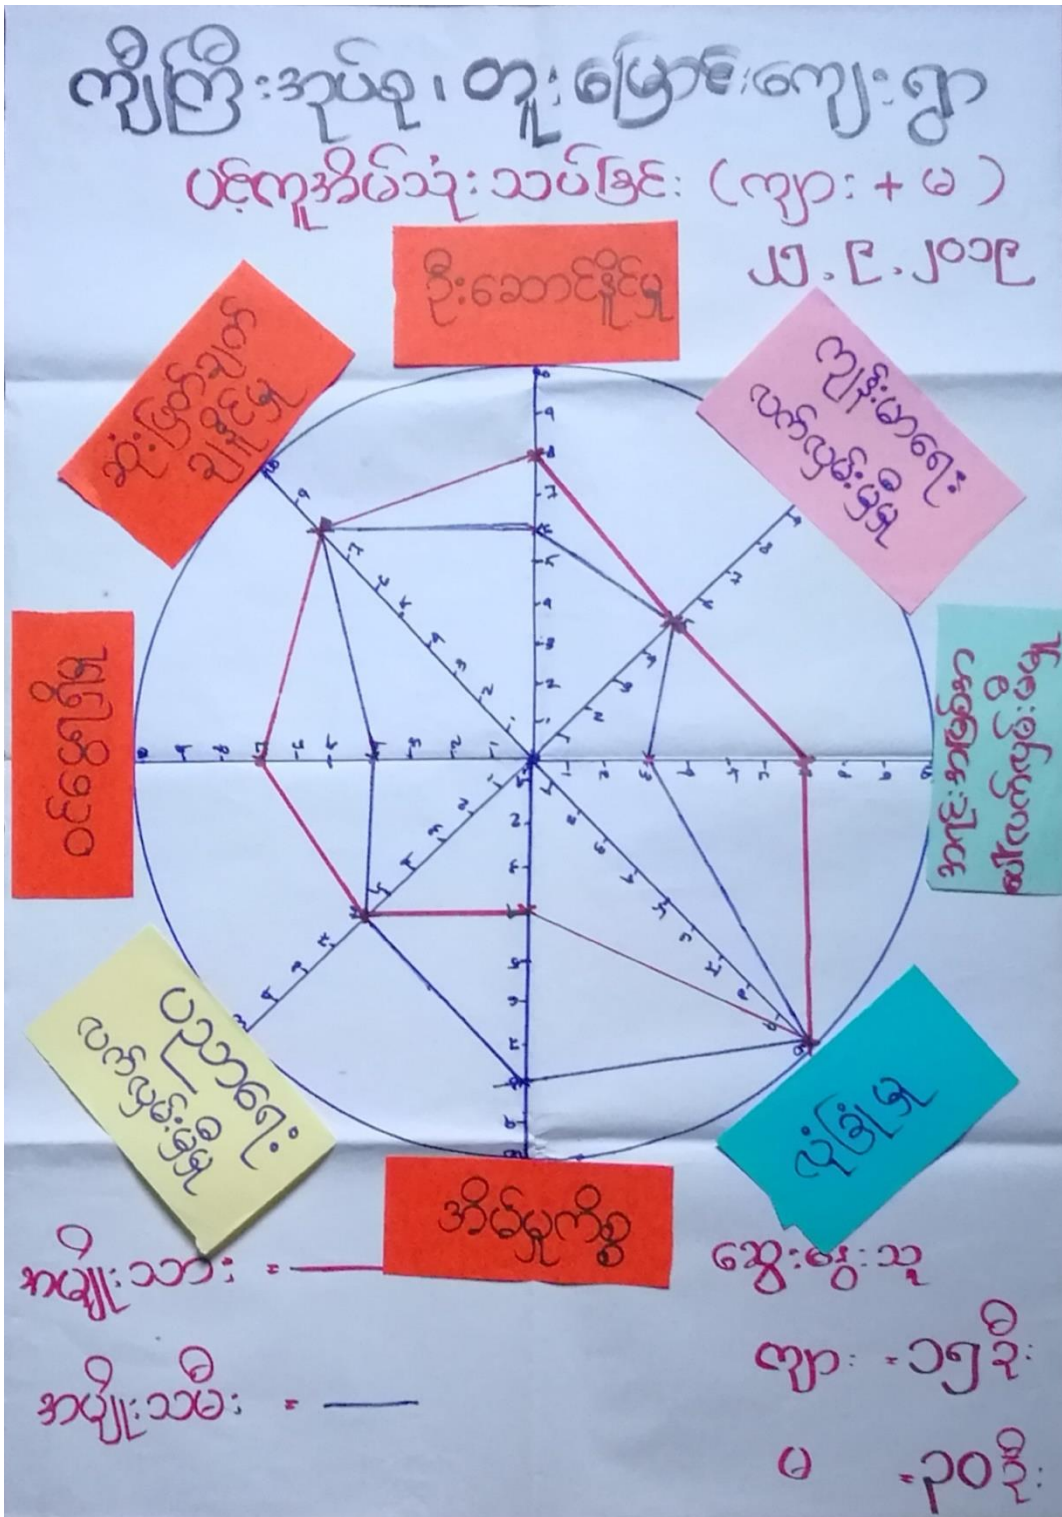 ကျီကြီးအုပ်စု၊ တူးမြောင်းကျေးရွာ
ပင့်ကူအိမ်သုံးသပ်ခြင်း (ကျား + မ)
၂၅.၉.၂၀၁၉
ဦးဆောင်နိုင်မှု
ကျန်းမာရေး
လက်လှမ်းမှီမှု
ပေါ်လက်လှမ်းမှီမှု
လုံခြုံမှု
အိမ်မှုကိစ္စ
ပညာရေး
လက်လှမ်းမှီမှု
ဝင်ငွေရရှိမှု
ဆုံးဖြတ်ချက်
ချနိုင်မှု
အမျိုးသား =
အမျိုးသမီး =
ဆွေးနွေးသူ
ကျား = ၁၅ ဦး
မ = ၃၀ ဦး